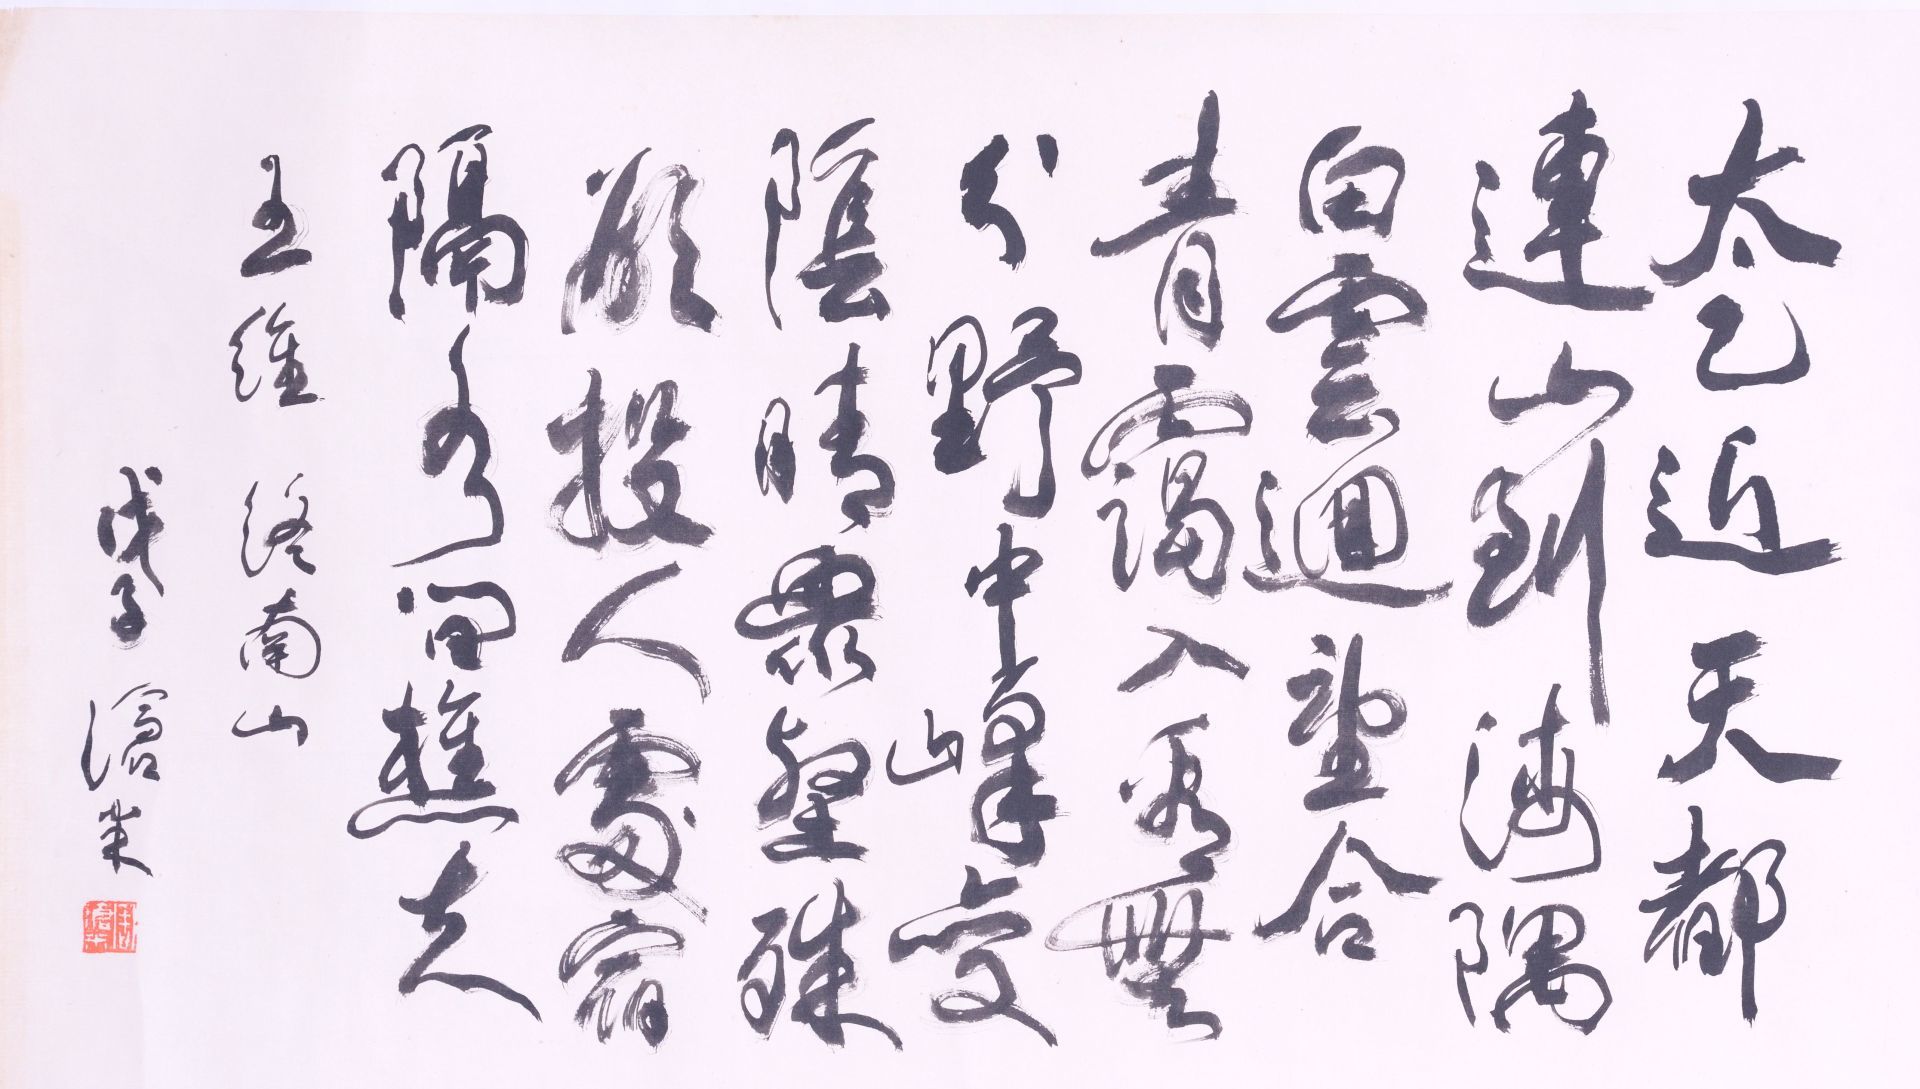 太乙近天都
連山到海隅
白雲迴望合
青靄入看無
分野中峰變
陰晴眾壑殊
欲投人處宿
隔水問樵夫
王維 終南山
戊子 滄米
周滄米